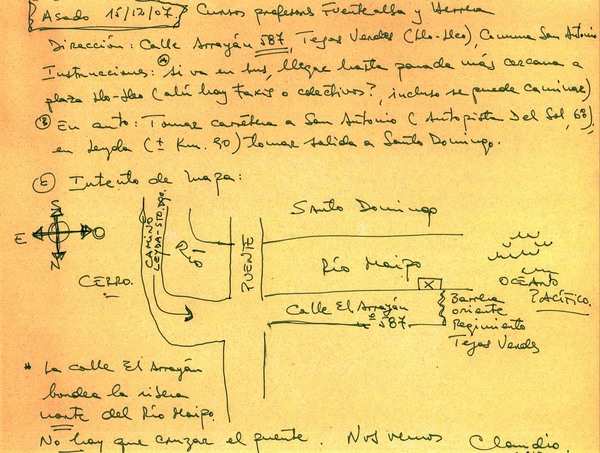 Asado 15/12/07. Cursos profesores Fuentealba y Herrera
Dirección: Calle Arrayán 587, Tejas Verdes (Llo-Lleo), Comuna San Antonio
Instrucciones: (A) Si va en bus, llegar hasta parada más cercana a
plaza Llo-Lleo (ahí hay taxis o colectivos?, incluso se puede caminar)
(B) En auto: Tomar carretera a San Antonio (Autopista Del Sol, 68),
en Leyda (± Km. 90) tomar salida a Santo Domingo.
(C) Intento de mapa:
S
E O
N
CERRO.
CAMINO
LEYDA-STO. DGO.
RÍO
PUENTE
Santo Domingo
Río Maipo
X
Calle El Arrayán
nº 587
OCEANO
PACÍFICO.
Barrera
oriente
Regimiento
Tejas Verdes
* La calle El Arrayán
bordea la ribera
norte del Río Maipo.
No hay que cruzar el puente. Nos vemos Claudio